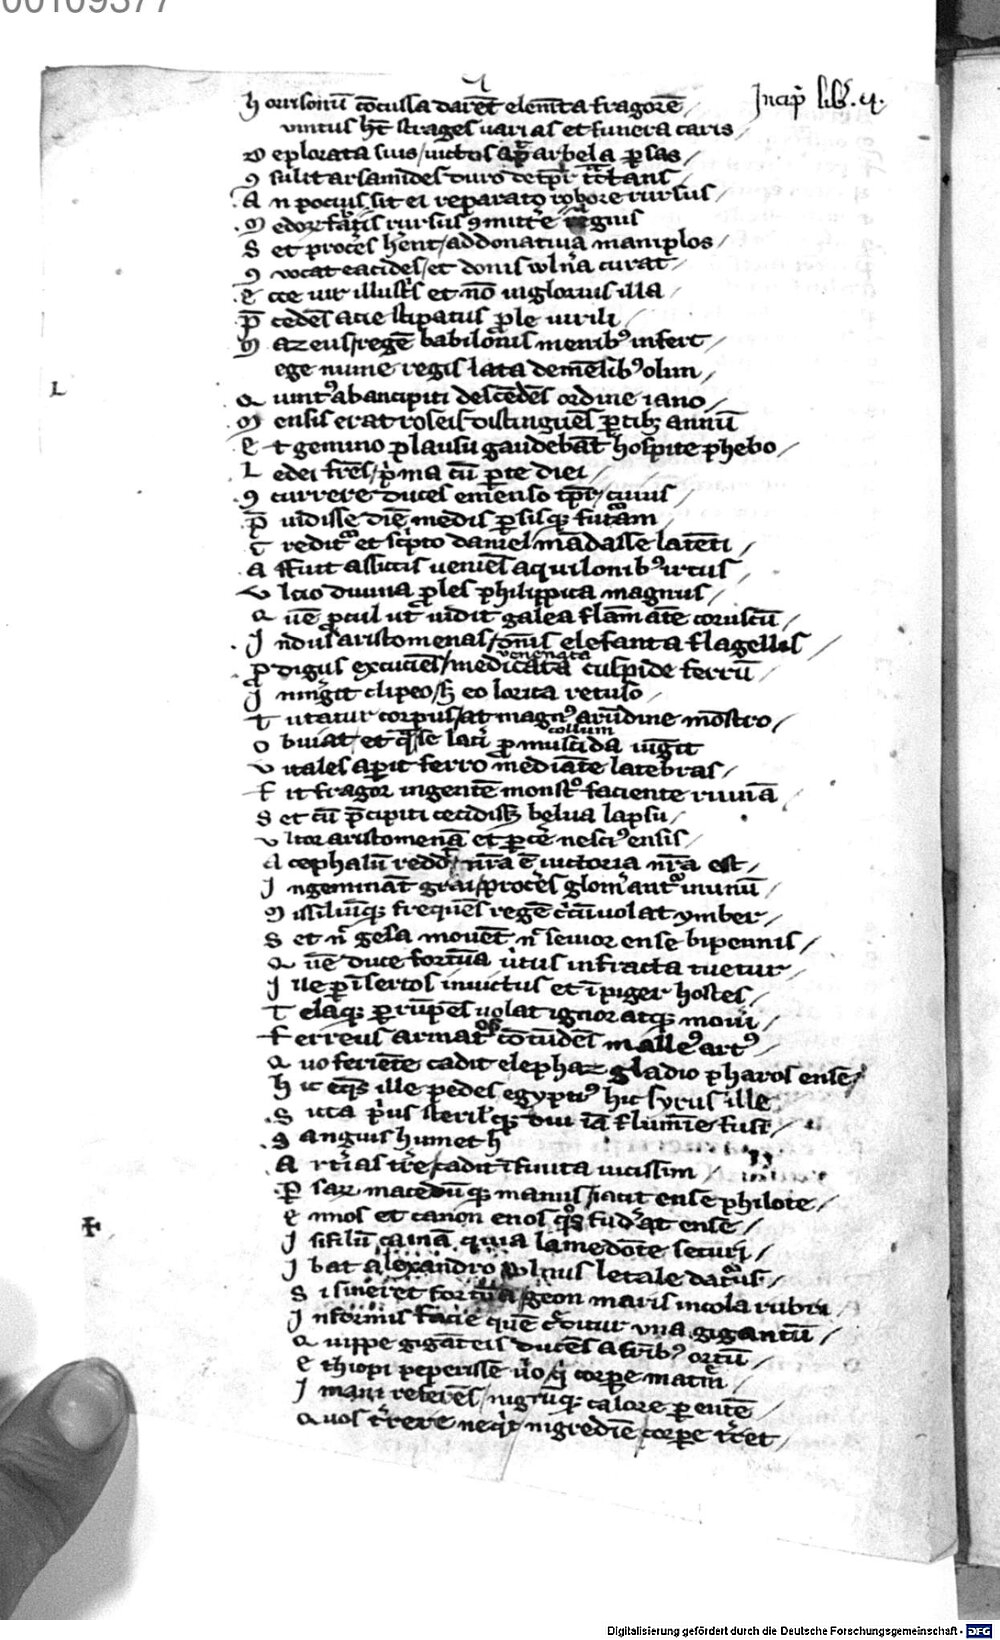 00109377
Incip̄ lib̄. q.
h orrisonū cōcussa darēt elem̄ta fragorē
uintus hꝫ strages uarias et funera caris
D eplorata suis uictus ap̄ arbela ꝑsas
ꝯ sulit arsamides duro
A n pocius sit ei reparato robore rursus
M edoꝝ fatis rursus ꝯmittē regnis
S et procēs hēnt ad donatiua maniplos
ꝯ uocat eacides et donis uuln̄a curat
E cce uir illustris et nō ingloriuſ illa
P̄ cedēs acie stipatus ꝓle uirili
M azeus regē babilonis menibꝰ infert
L ege nume regis lata demēsibꝰ olim
Q uintꝰ ab ancipiti descēdēs ordine iano
M ensis erat roseis distinguēs ꝑtibꝫ annū
E t gemino plausu gaudebāt hospite phebo
L edei frēs p̄ma cū ꝑte diei
ꝯ currere duces emenso tp̄r cuius
P̄ uidisse diē medis ꝑsisqꝫ futᵃam
C redit̄ et scͥpto daniel mādasse latēti
A ffuit assirijs ueniēs aquilonibꝰ ircus
U ltio diuina ꝓles philippica magnus
Q uē ꝓcul ut uidit galea flāmāte coruscū
I ndus aristomenas om̄is elefanta flagellis
P ꝓdigus excuciēs medicata cuspide ferrū
venenata
I ningͥt clipeo sꝫ eo lorica retuso
T utatur corpus at magnꝰ arūdine mōstro
O buiat et qᵃsse laci ꝓmuscida iūgͥt
collum
U itales apit ferro mediāte latebras
F it fragor ingentē monstͦ faciente ruinā
S et cū p̄cipiti cecidisꝫ belua lapsu
U ltor aristomenā et ꝑcēˀ nesciꝰ ensis
A cephalū redd̄ nr̄a ē uictoria nr̄a est
I ngemināt grai procēs glomˀantᵃ inunū
M issiliūqꝫ frequēs regē cͥcūuolat ymber
S et nˀ gesa mouēt nˀ seuior ense bipennis
Q uē duce fortūa uͥtus infracta tuetur
I lle ꝑ īsertos inuictus et īpiger hostes
T elaqꝫ ꝑrūpēs uolat ignor atqꝫ moui
F erreus armatos cōtūdēs malleꝰ artꝰ
Q uo feriēte cadit elephaz gladio pharos ense
H ic eqͥs ille pedes egyptiꝰ hic syrus ille
S icca pͥus sterilisqꝫ diu iā flumīe fusi
S anguis humet h
A rtīas tr̄e cadit īfinita uicissim
P ꝑsaꝝ macedūqꝫ manus iacit ense philote
E nnos et canon enos qͦs fudˀat ense
I sifilū cainā quia lamedōte securi
I bat alexandro uulnus letale datᵃus
S i sineret fortūa geon maris incola rubri
I nformis facie quē cͬditur una gigantū
Q uippe gigāteis ducēs a frībꝰ ortū
E thiopi peperisse uͥo qͥ corpe matͥm
I mani referēs nigrūqꝫ calore parentē
Q uos tˀrere neqͥt nigrediē corpe tˀret
L
Digitalisierung gefördert durch die Deutsche Forschungsgemeinschaft - DFG